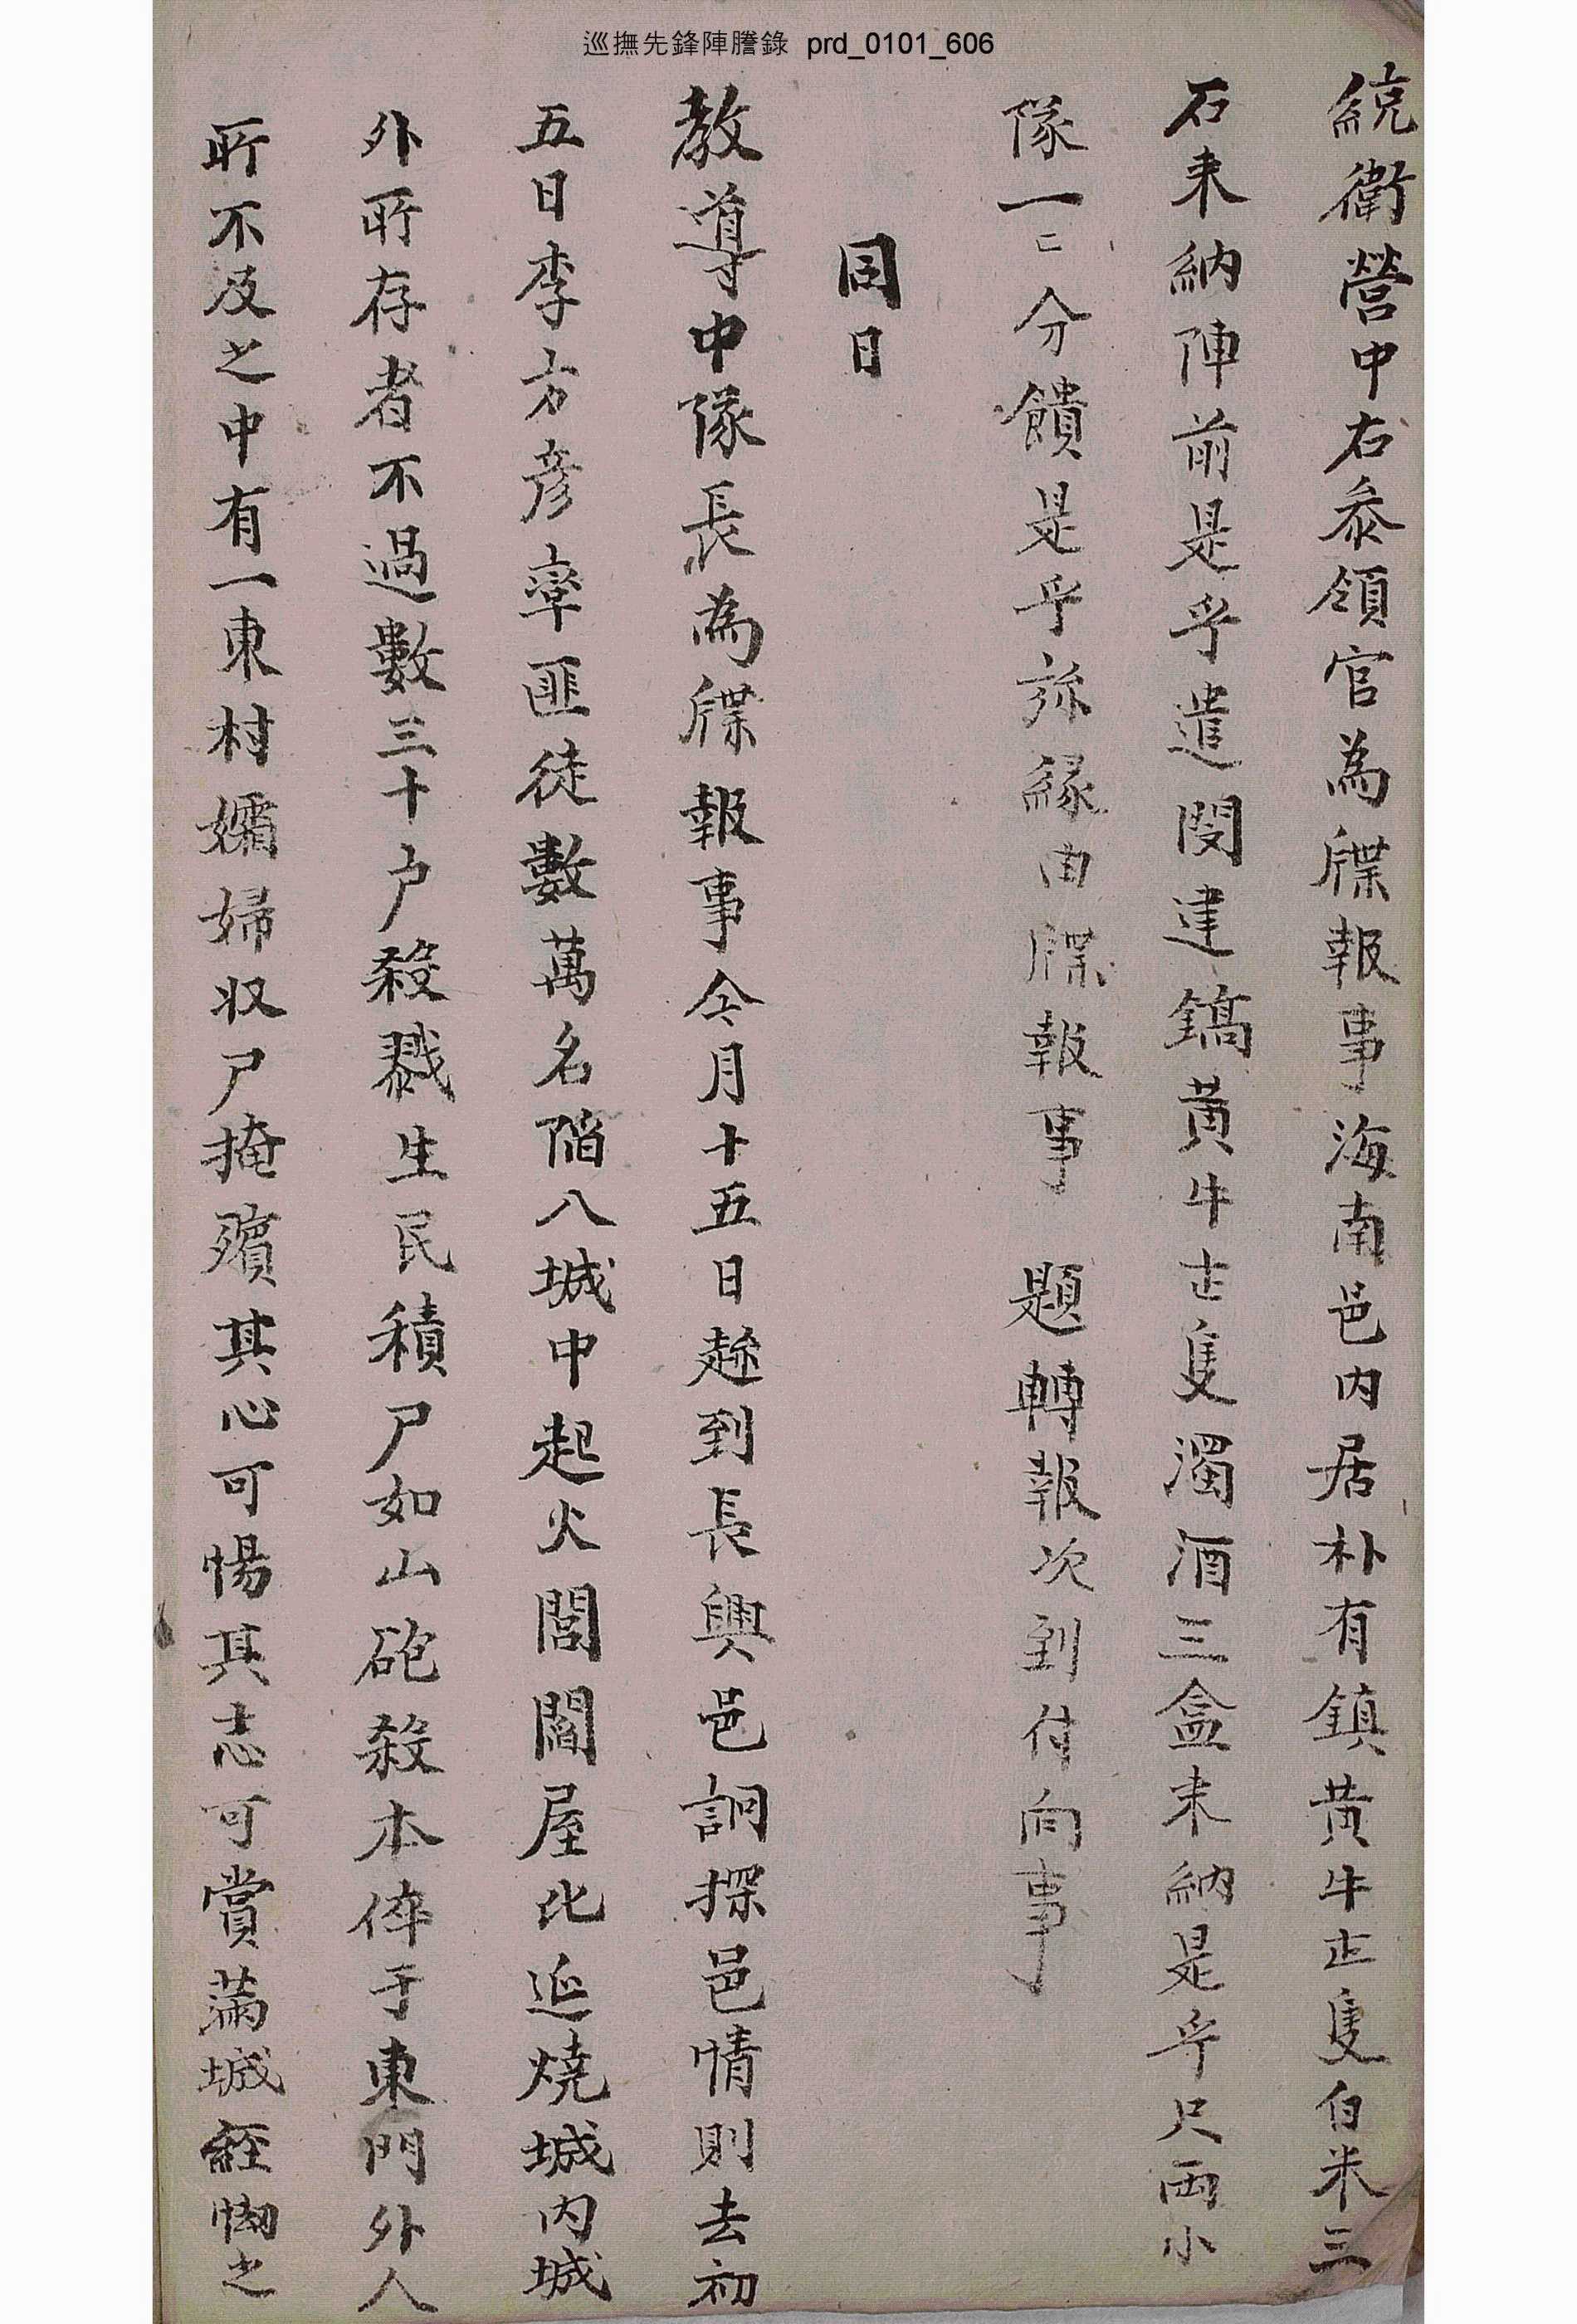 巡撫先鋒陣謄錄 prd_0101_606
統衛營中右叅領官為牒報事海南邑内居朴有鎮黄牛壱隻白米三
石来納陣前是乎遣閔建鎬黄牛壱隻濁酒三盒来納是乎尺両小
隊一二分饋是乎旀緣由牒報事 題轉報次到付向事
同日
教導中隊長為牒報事今月十五日趂到長興邑詗探邑情則去初
五日李方彦率匪徒數萬名陷入城中起火閭閻屋比延燒城内城
外所存者不過數三十户殺戮生民積尸如山砲殺本倅于東門外人
所不及之中有一東村孀婦収尸掩殯其心可惕其志可賞滿城經㥘之